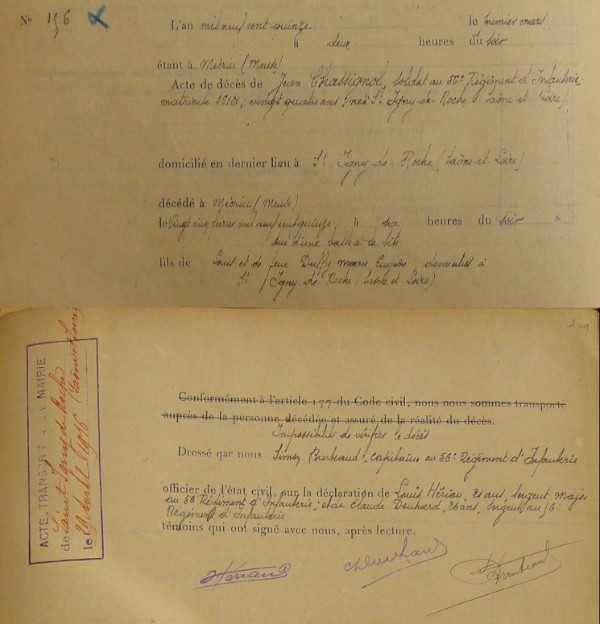 N° 156 L'an mil neuf cent quinze le premier mars
à deux heures du soir
étant à Mécrin (Meuse)
Acte de décès de Jean Chassignol, soldat au 56e Régiment d'Infanterie
matricule vingt quatre ans, né à St Igny-de-Roche (Saône et Loire)
domicilié en dernier lieu à St Igny-de-Roche (Saône et Loire)
décédé à Mécrin (Meuse)
le vingt cinq février mil neuf cent quinze, à six heures du soir
tué d'une balle à la tête
fils de Louis et de feue Marie domiciliés à
St Igny de Roche (Saône et Loire)
149
ACTE TRANSCRIT MAIRIE
de Saint Igny de Roche (Saône et Loire)
le 29 1916
Conformément à l'article 177 du Code civil, nous nous sommes transporté
auprès de la personne décédée et assuré de la réalité du décès.
Impossibilité de vérifier le décès
Dressé par nous Simon capitaine au 56e Régiment d'Infanterie
officier de l'état civil, sur la déclaration de Louis Hériau, ans, sergent major
au 56 Régiment d'Infanterie, et de Claude 26 ans, sergent au 56
Régiment d'Infanterie
témoins qui ont signé avec nous, après lecture.
Hériau